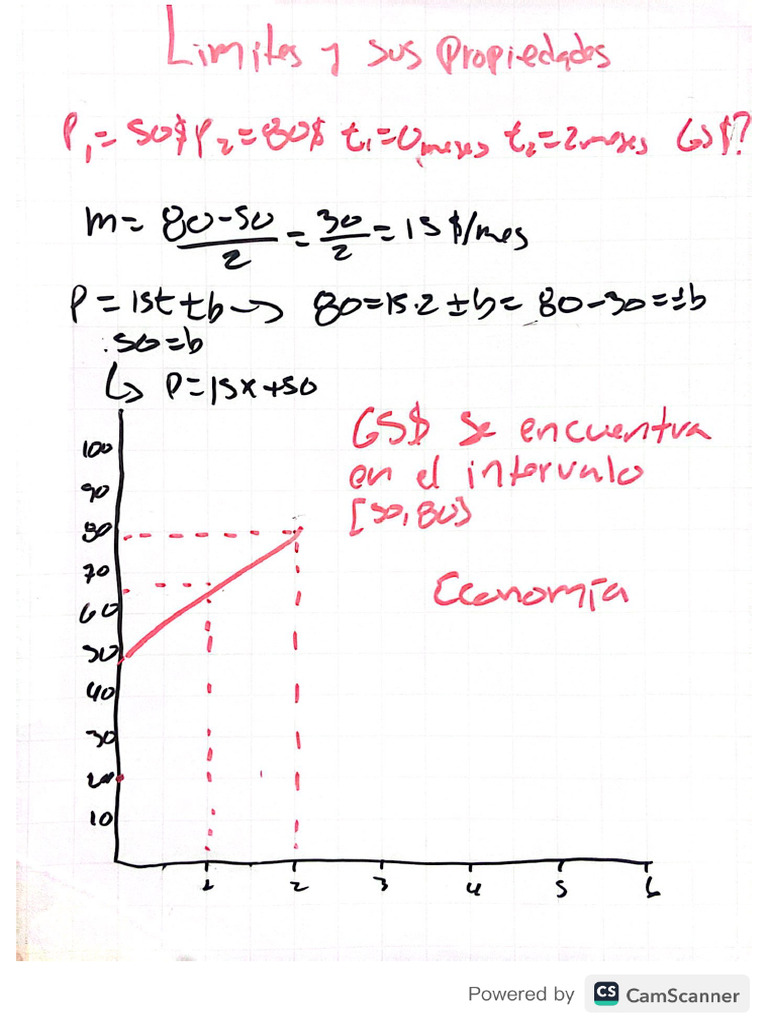 Limites y sus Propiedades
P₁=50$ P₂=80$ t₁=0meses t₂=2meses 65$?
m= 80-50/2 = 30/2 = 15$/mes
P=15t±b→ 80=15·2±b= 80-30=±b
.50=b
↳ P=15x+50
65$ se encuentra
en el intervalo
[50,80]
Economía
100
90
80
70
60
50
40
30
20
10
1 2 3 4 5 6
Powered by CS CamScanner